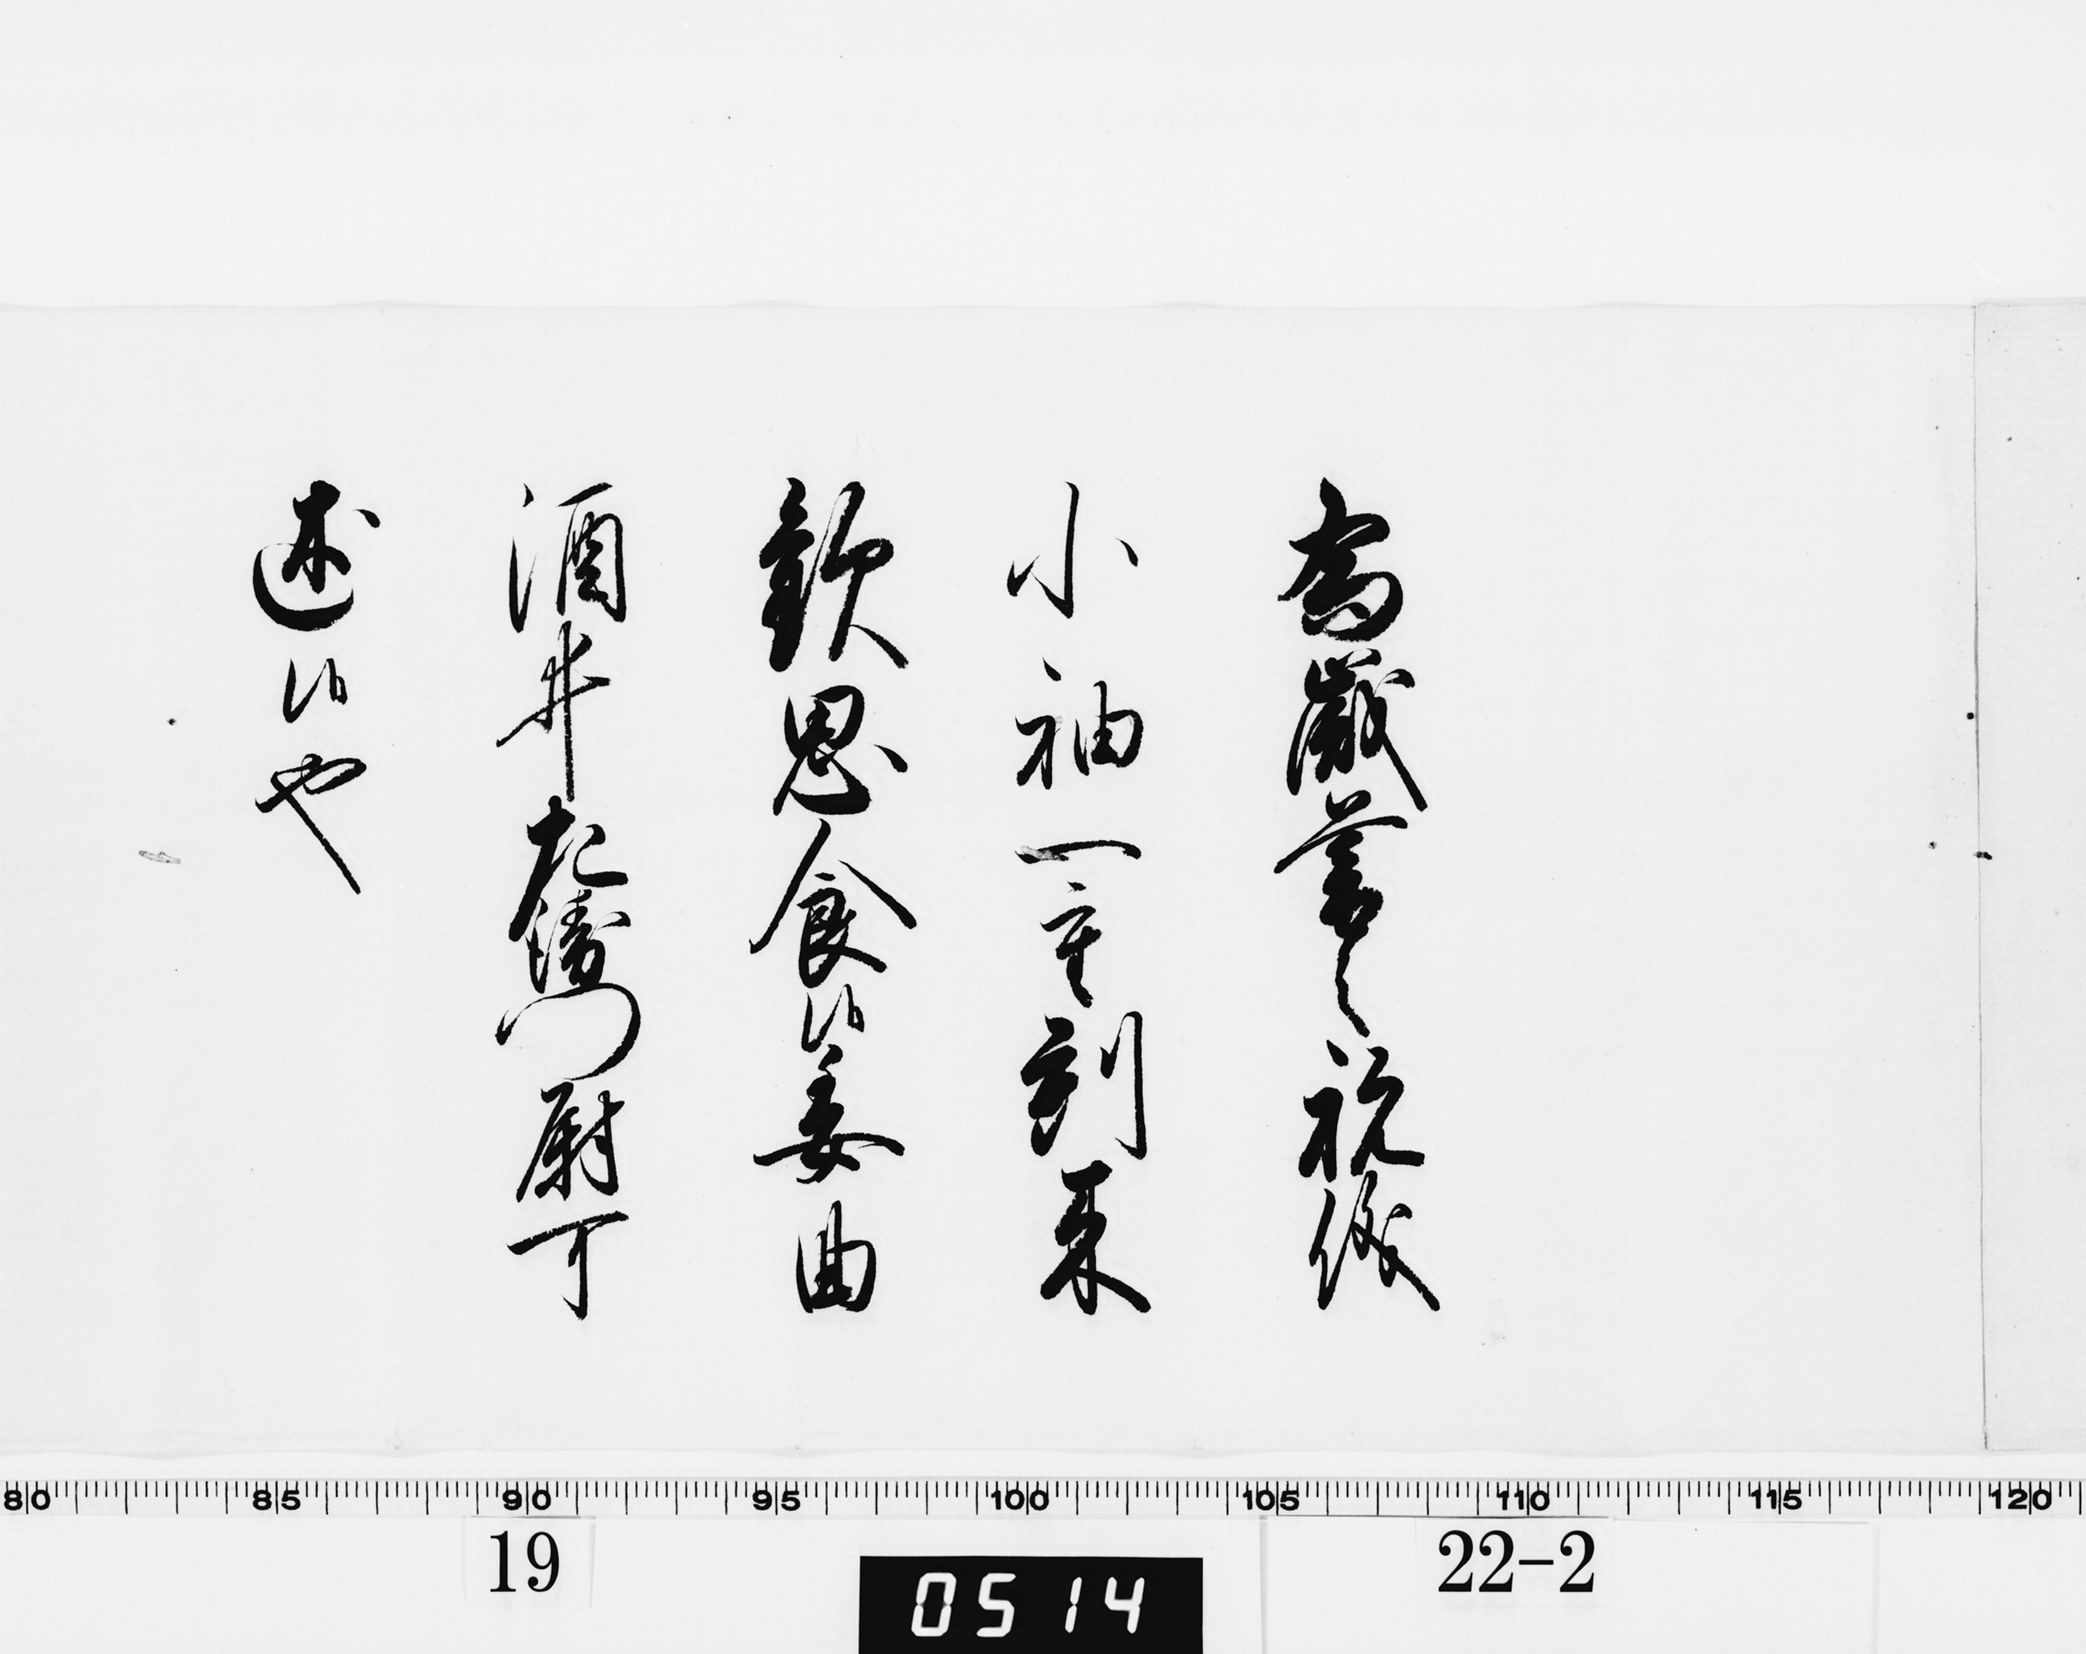 為歳暮之祝儀
小袖一重到来
歓思食候委曲
酒井左衛門尉可
述候也
80 85 90 95 100 105 110 115 120
19
0514
22-2